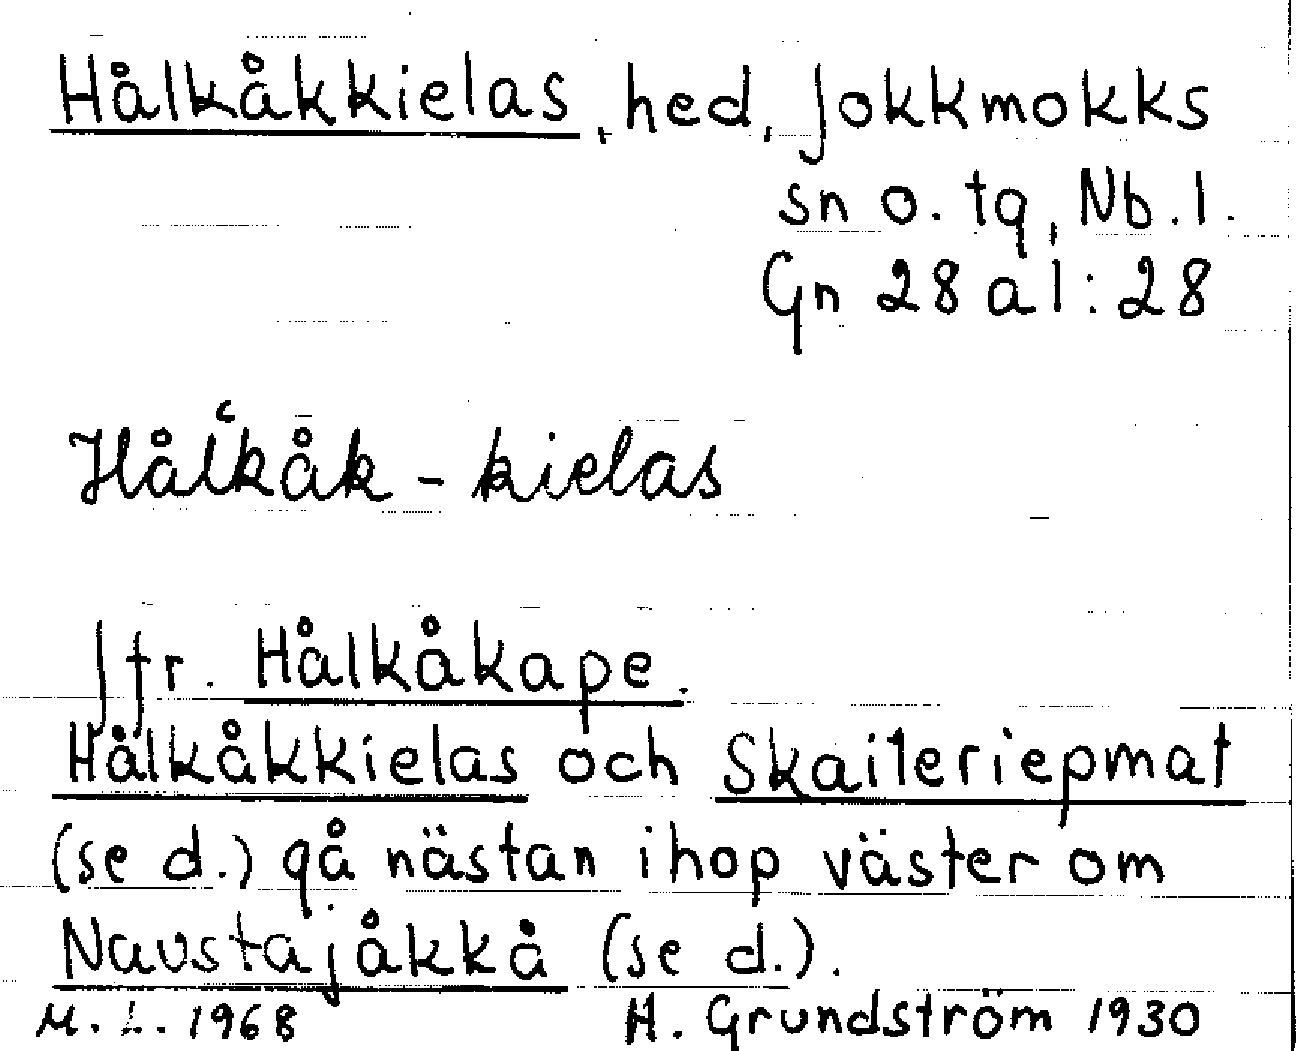 Hålkåkkielas, hed, Jokkmokks
sn o. tg, Nb. l.
Gn 28 a l : 28
Hålʿkåk - kielas
Jfr. Hålkåkape.
Hålkåkkielas och Skaiteriepmat
(se d.) gå nästan ihop väster om
Navstajåkkå (se d.).
M. L. 1968 H. Grundström 1930